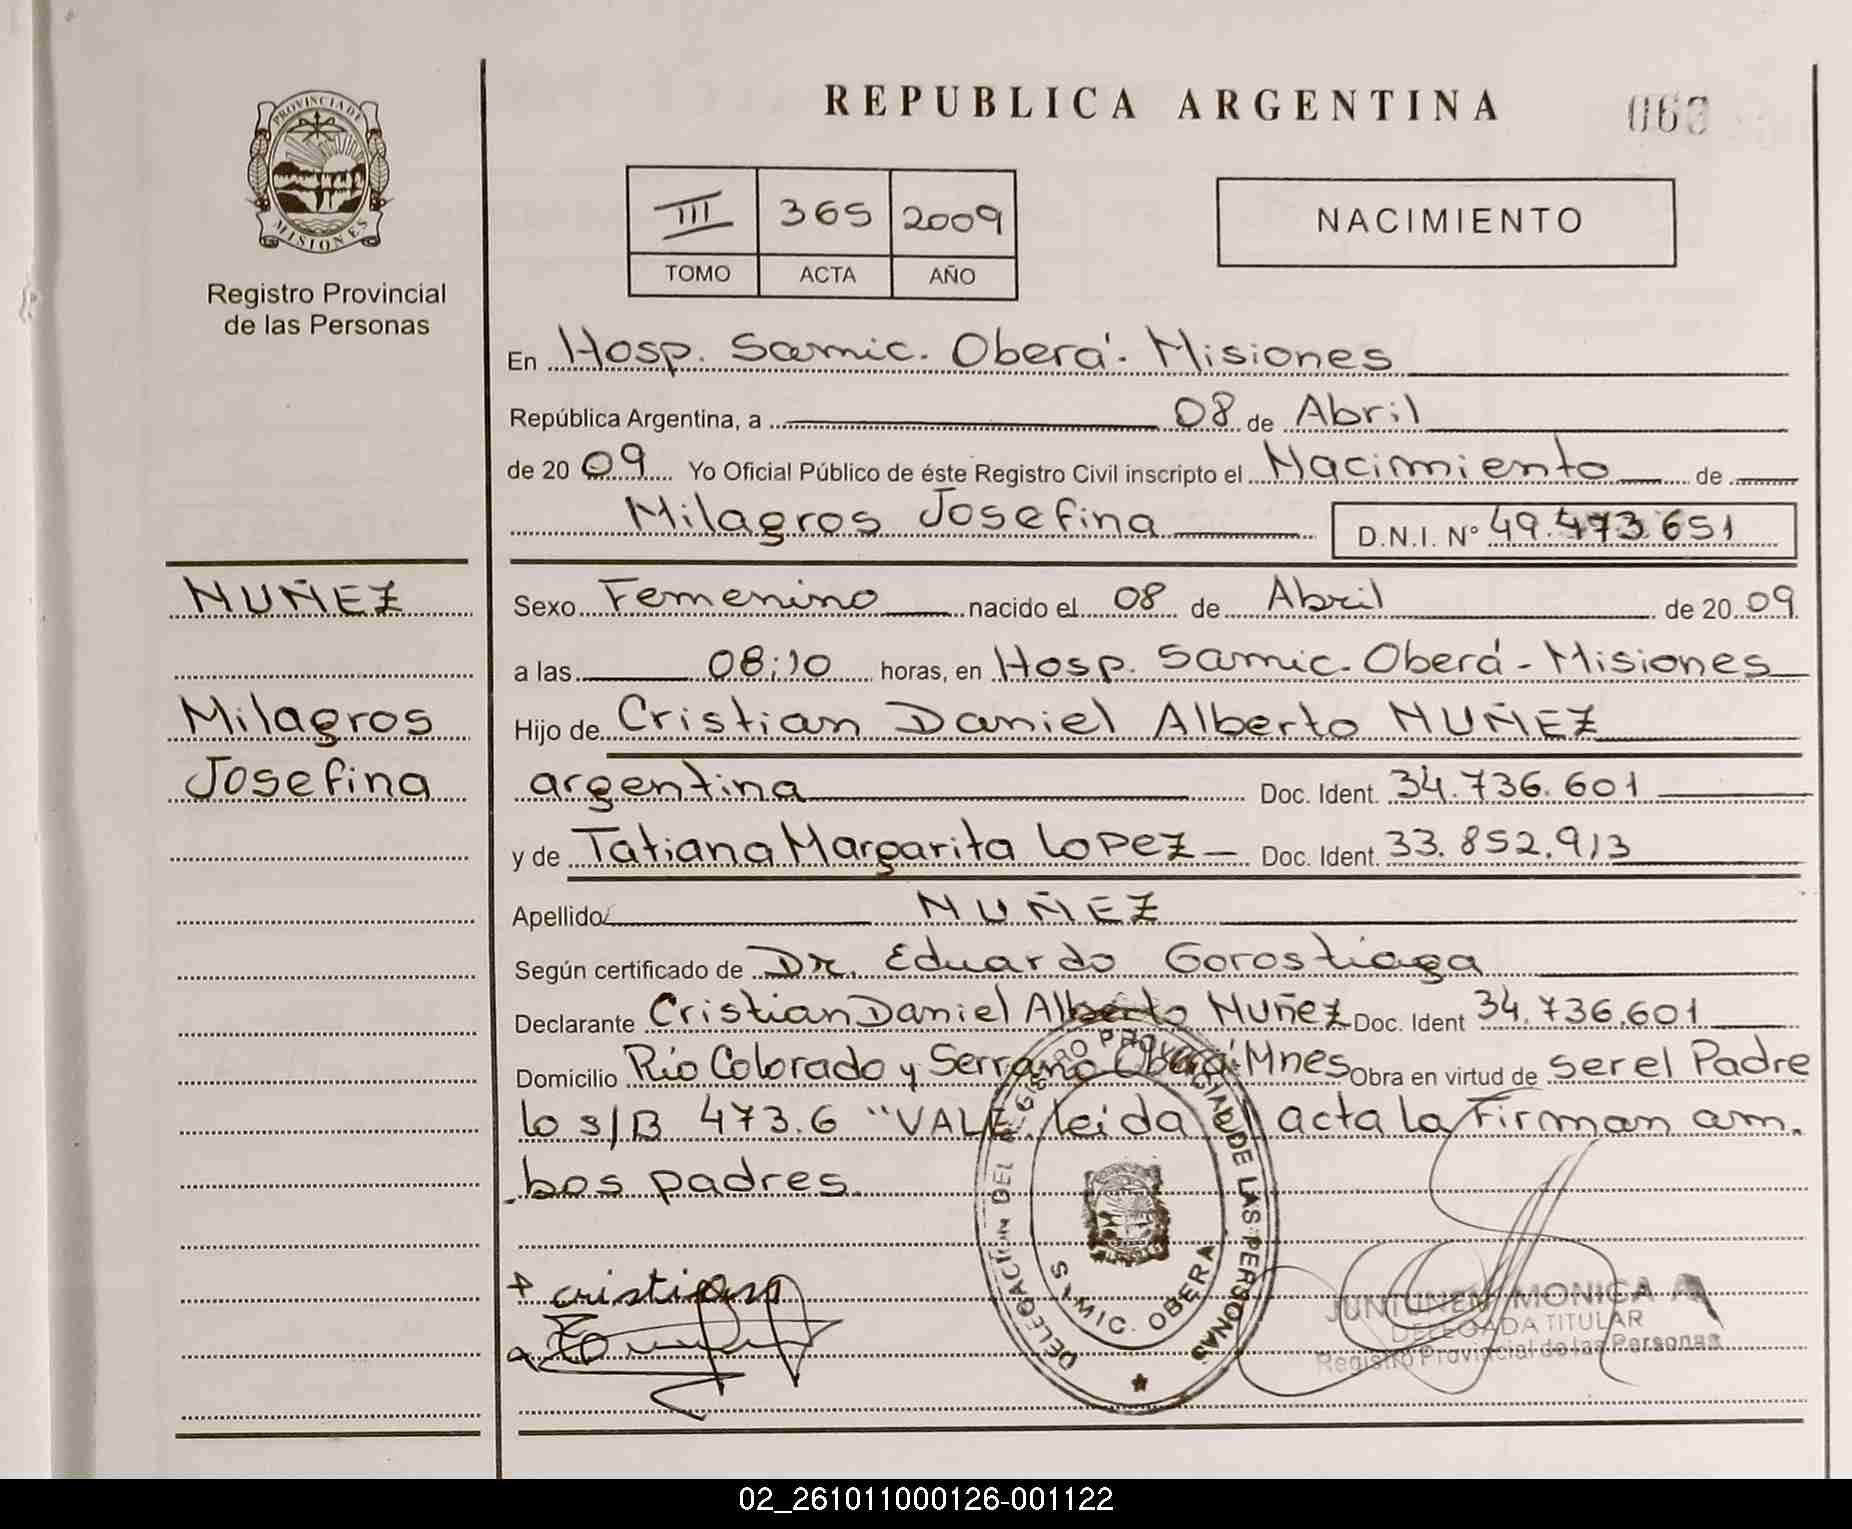 REPUBLICA ARGENTINA
PROVINCIA DE
MISIONES
Registro Provincial
de las Personas
III 365 2009
TOMO ACTA AÑO
NACIMIENTO
En Hosp. Samic. Oberá. Misiones
República Argentina, a 08 de Abril
de 20 09 Yo Oficial Público de éste Registro Civil inscripto el Nacimiento de
Milagros Josefina D.N.I. N° 49.473.651
NUÑEZ
Milagros
Josefina
Sexo Femenino nacido el 08 de Abril de 20 09
a las 08:10 horas, en Hosp. Samic. Oberá - Misiones
Hijo de Cristian Daniel Alberto NUÑEZ
argentina Doc. Ident. 34.736.601
y de Tatiana Margarita Lopez Doc. Ident. 33.852.913
Apellido NUÑEZ
Según certificado de Dr. Eduardo Gorostiaga
Declarante Cristian Daniel Alberto Nuñez Doc. Ident 34.736.601
Domicilio Río Colorado y Serrano Oberá Mnes Obra en virtud de ser el Padre
lo s/B 473.6 "VALE. leida el acta la Firman am.
bos padres.
DELEGACIÓN DEL REGISTRO PROVINCIAL DE LAS PERSONAS
SAMIC. OBERA
cristian
JUNTUNEN MONICA A
DELEGADA TITULAR
Registro Provincial de las Personas
02_261011000126-001122